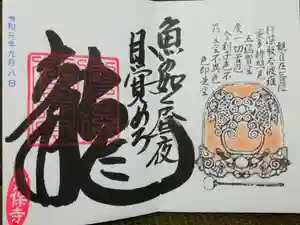 観自在菩薩
行深般若波羅
蜜多時照見
五蘊皆空
度一切苦厄
舎利子色不
異空空不異色
色即是空
魚の如く昼夜
目覚めろ
龍
保寺
令和元年九月八日